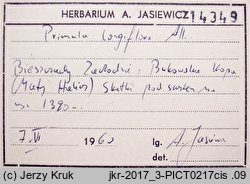 HERBARIUM A. JASIEWICZ 14349
Primula longiflora All.
Bieszczady Zachodnie: Bukowska Kopa
(Mały Halicz) Skałki pod szczytem
1960
lg. A. Jasiew
det.
(c) Jerzy Kruk jkr-2017_3-PICT0217cis .09